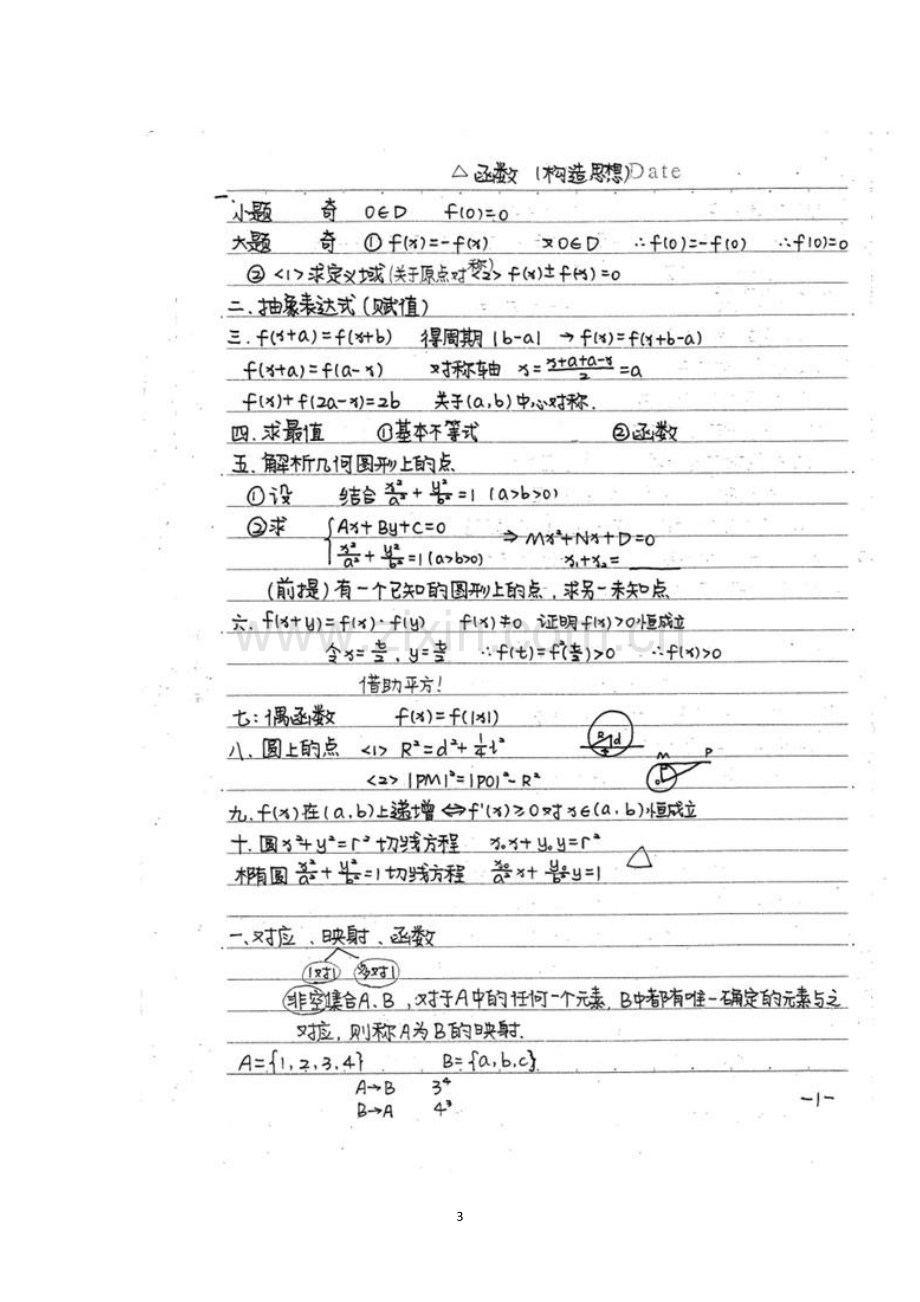 △函数(构造思想)Date
一
小题 奇 0∈D f(0)=0
大题 奇 ① f(x)=-f(x) 又0∈D ∴f(0)=-f(0) ∴f(0)=0
② <1>求定义域(关于原点对称) <2> f(x)±f(-x)=0
二.抽象表达式(赋值)
三.f(x+a)=f(x+b) 得周期|b-a| →f(x)=f(x+b-a)
f(x+a)=f(a-x) 对称轴 x=\frac{x+a+a-x}{2}=a
f(x)+f(2a-x)=2b 关于(a,b)中心对称.
四.求最值 ①基本不等式 ②函数
五.解析几何图形上的点
①设 结合 \frac{x²}{a²}+\frac{y²}{b²}=1 (a>b>0)
②求 { Ax+By+C=0 ⇒ Mx²+Nx+D=0
\frac{x²}{a²}+\frac{y²}{b²}=1(a>b>0) x₁+x₂=____
(前提)有一个已知的图形上的点,求另一未知点
六.f(x+y)=f(x)·f(y) f(x)≠0 证明f(x)>0恒成立
令x=\frac{t}{2},y=\frac{t}{2} ∴f(t)=f²(\frac{t}{2})>0 ∴f(x)>0
借助平方!
七:偶函数 f(x)=f(|x|)
R d
八.圆上的点 <1> R²=d²+\frac{1}{4}l²
M P
<2> |PM|²=|PO|²-R²
O
九.f(x)在(a,b)上递增⇔f'(x)≥0对x∈(a,b)恒成立
十.圆x²+y²=r²切线方程 x₀x+y₀y=r² △
椭圆 \frac{x²}{a²}+\frac{y²}{b²}=1切线方程 \frac{x₀}{a²}x+\frac{y₀}{b²}y=1
一、对应、映射、函数
1对1 多对1
非空集合A、B,对于A中的任何一个元素,B中都有唯一确定的元素与之
对应,则称A为B的映射.
A={1,2,3,4} B={a,b,c}
A→B 3⁴
B→A 4³
-1-
www.zixin.com.cn
3